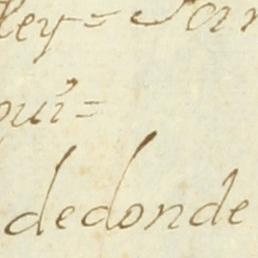 ley=
qui=
dedonde